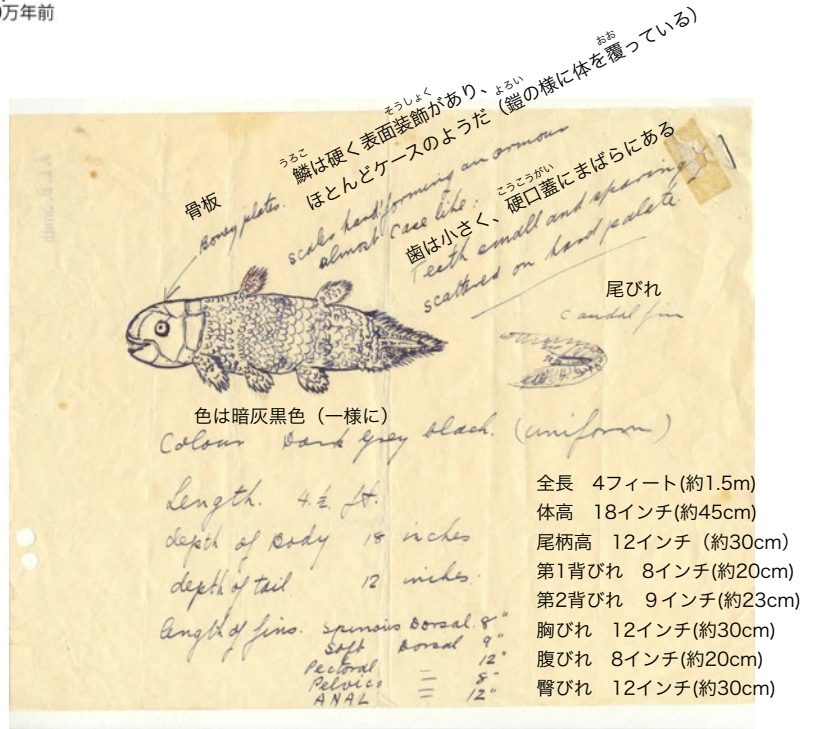 0万年前
うろこ
そうしょく
鱗は硬く表面装飾があり、
よろい
おお
ほとんどケースのようだ（鎧の様に体を覆っている）
骨板
Boney plates.
scales hard forming an armour
almost case like.
こうこうがい
歯は小さく、硬口蓋にまばらにある
Teeth small and sparing
scattered on hard palate.
尾びれ
Caudal fin
色は暗灰黒色（一様に）
Colour Dark grey black. (uniform)
Length. 4½ ft.
depth of Body 18 inches
depth of tail 12 inches.
length of fins. Spinous Dorsal. 8"
Soft Dorsal 9"
Pectoral 12"
Pelvics = 8"
ANAL = 12"
全長　4フィート(約1.5m)
体高　18インチ(約45cm)
尾柄高　12インチ（約30cm）
第1背びれ　8インチ(約20cm)
第2背びれ　９インチ(約23cm)
胸びれ　12インチ(約30cm)
腹びれ　8インチ(約20cm)
臀びれ　12インチ(約30cm)